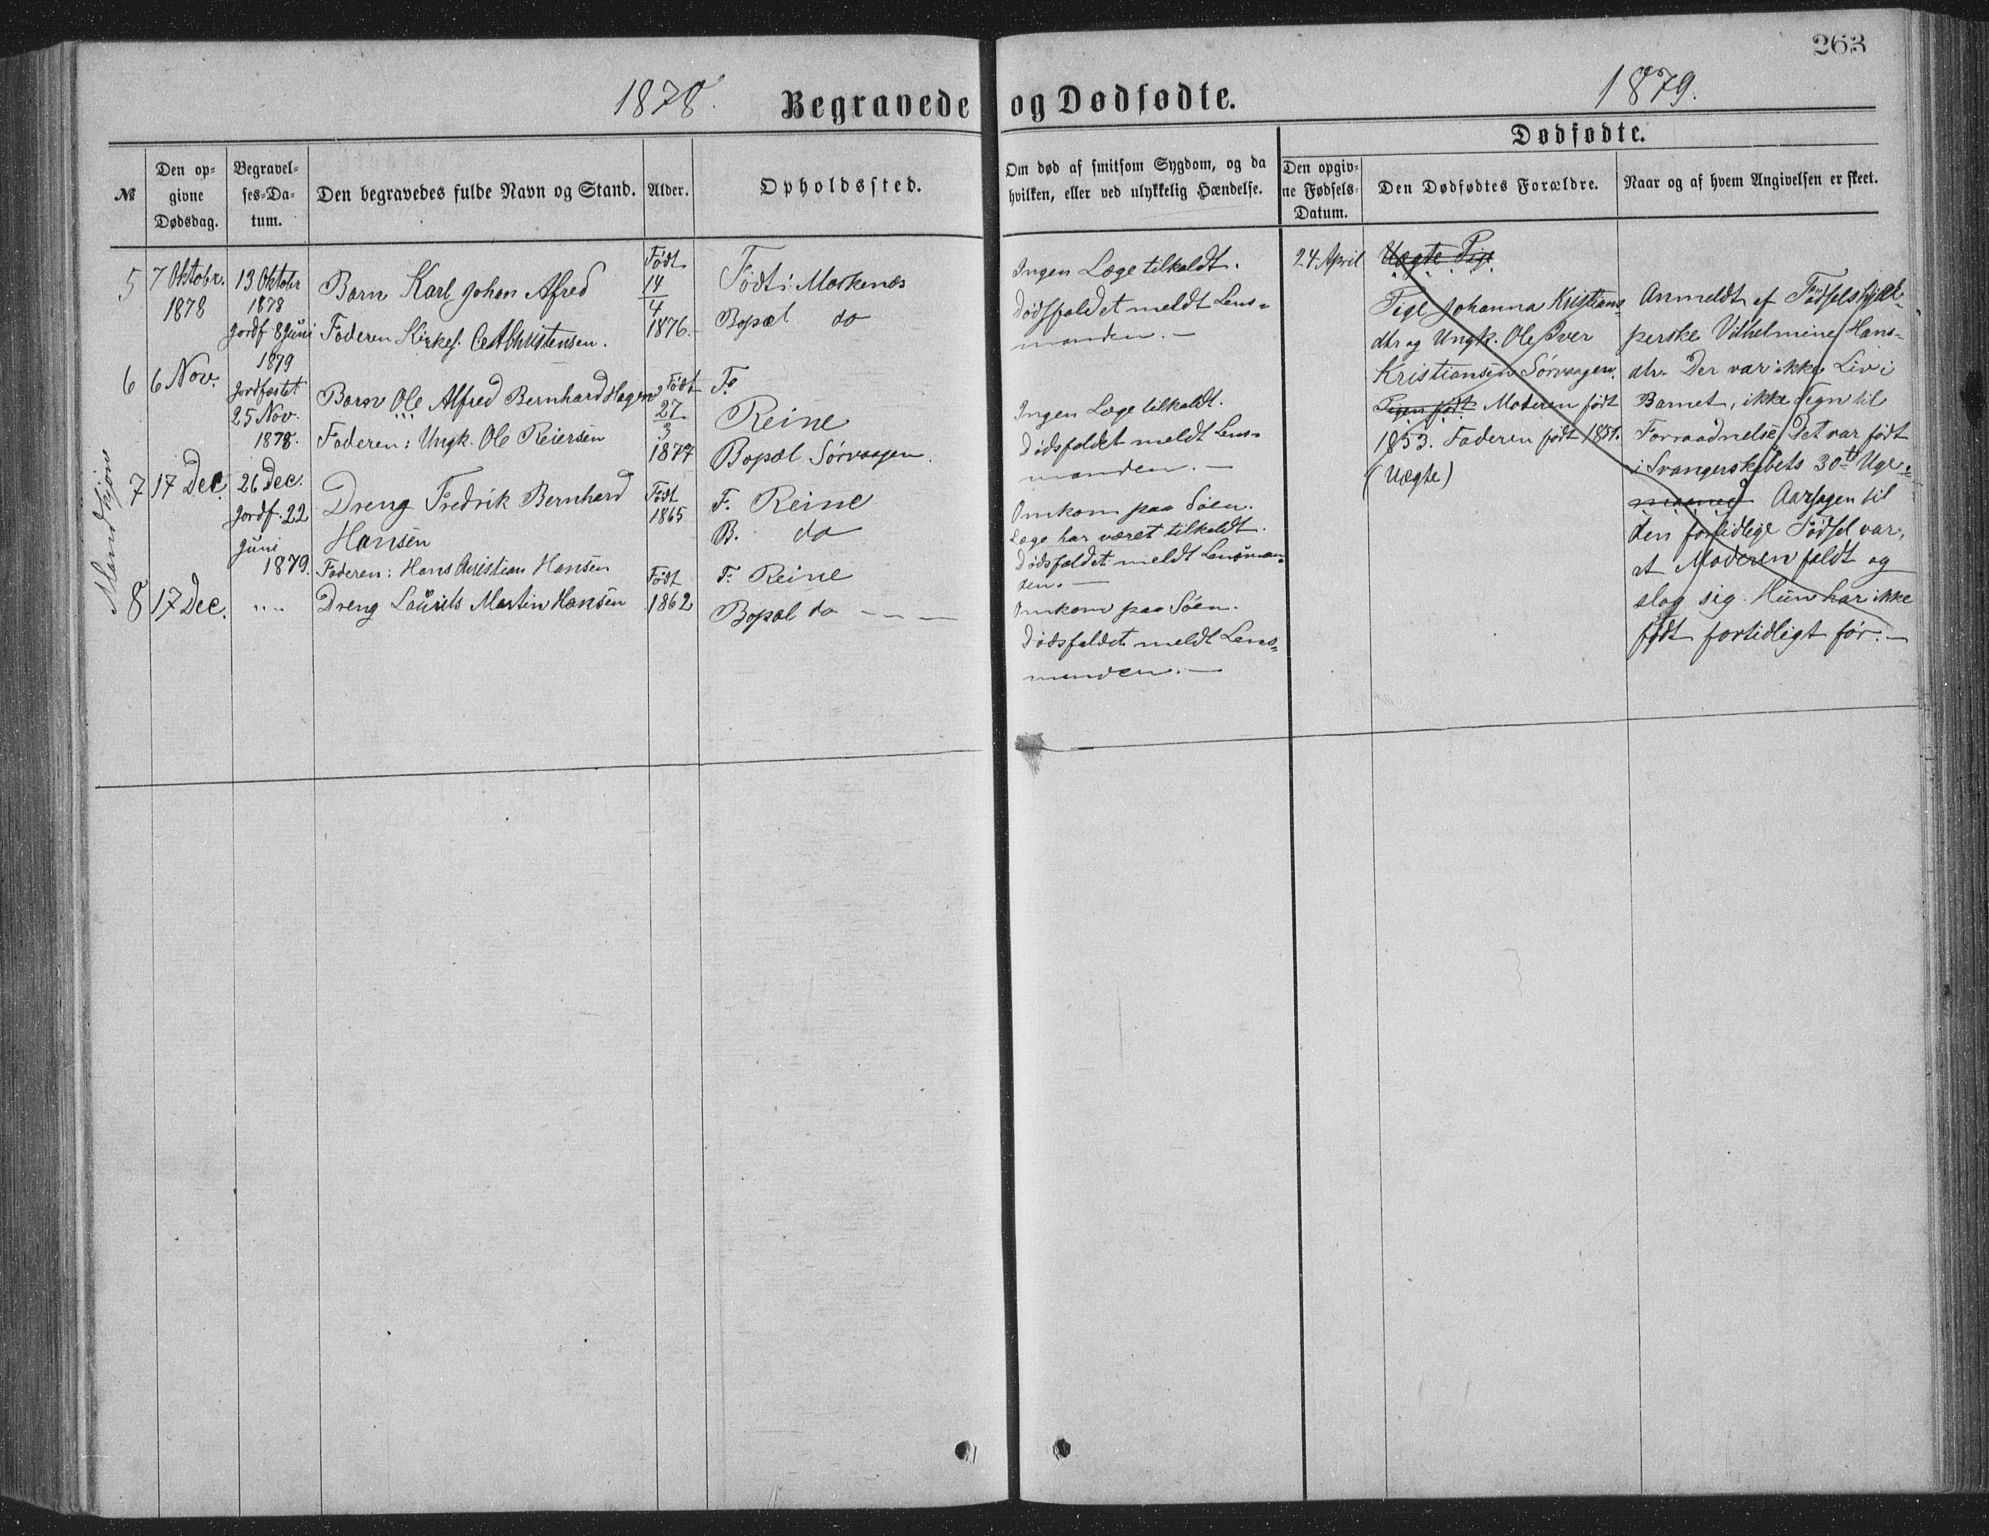 263
1878.
Begravede og Dødfødte.
1879.
Dødfødte.
№
Den op-
givne
Dødsdag.
Begravel-
ses-Da-
tum.
Den begravedes fulde Navn og Stand.
Alder.
Opholdssted.
Om død af smitsom Sygdom, og da
hvilken, eller ved ulykkelig Hændelse.
Den opgiv-
ne Fødsels-
Datum.
Den Dødfødtes Forældre.
Naar og af hvem Angivelsen er skeet.
Mandkjøn
5
7 Oktobr.
1878
13 Oktobr
1878
Jordf 8 Juni
1879
Barn Karl Johan Alfred
Faderen Kirkes. Christensen.
Født
14
4
1876.
Født i Moskenæs
Bopæl do
Ingen Læge tilkaldt.
Dødsfaldet meldt Lens=
manden. —
6
6 Nov.
Jordfæstet
25 Nov.
1878.
Barn Ole Alfred Bernhard Hagen
Faderen: Ungk. Ole Reiersen
Født
27
3
1877
F.
Reine
Bopæl Sørvaagen.
Ingen Læge tilkaldt.
Dødsfaldet meldt Lens=
manden. —
7
17 Dec.
26 Dec.
Jordf. 22
Juni
1879.
Dreng Fredrik Bernhard
Hansen
Faderen: Hans Christian Hansen
Født
1865
F. Reine
B. do
Omkom paa Søen.
Læge har været tilkaldt.
Dødsfaldet meldt Lensman=
den. —
8
17 Dec.
" "
Dreng Laurits Martin Hansen
Født
1862
F. Reine
Bopæl do — — —
Omkom paa Søen.
Dødsfaldet meldt Lens=
manden. —
24. April
Uægte Pige
Pige Johanna Kristians
dtr og Ungk. Ole Iver
Kristiansen Sørvaagen.
Pigen født Moderen født
1853. Faderen født 1851.
(Uægte)
Anmeldt af Fødselshjæl-
perske Vilhelmine Hans-
dtr. Der var ikke Liv i
Barnet, ikke Tegn til
Forraadnelse. Det var født
i Svangerskabets 30te Uge
Aarsagen til
den fortidlige Fødsel var,
at Moderen faldt og
slog sig. Hun har ikke
født fortidligt før. —